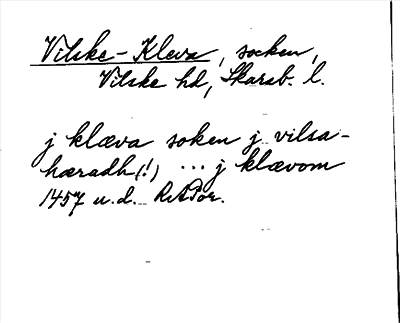 Vilske-Kleva, socken,
Vilske hd, Skarab. l.
j klæva soken j vilsa-
hæradh (!) ... j klævom
1457 u.d. RAPor.